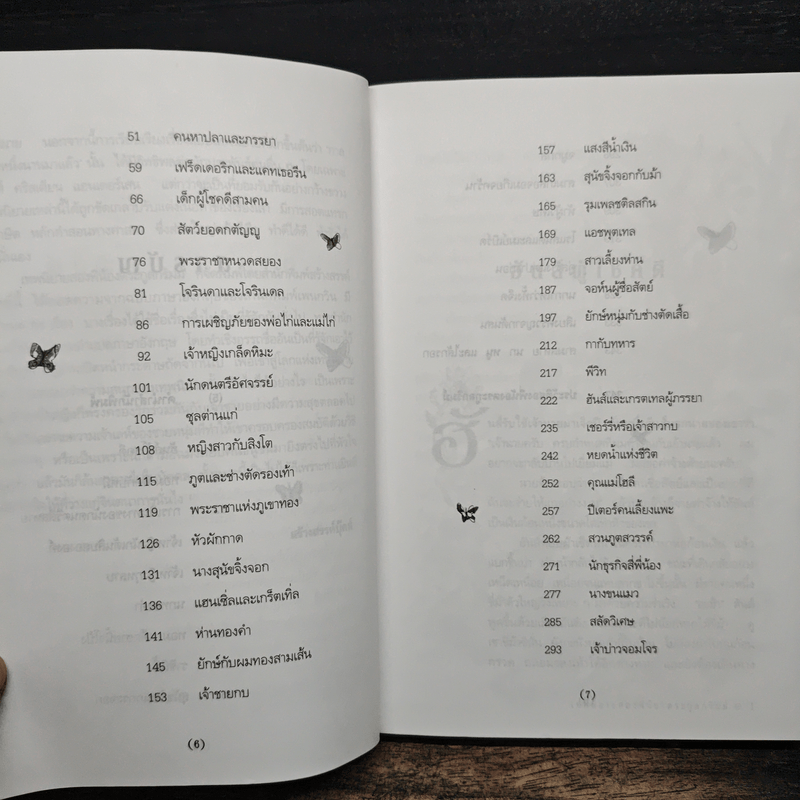 51 คนหาปลาและภรรยา
59 เฟร็ดเดอริกและแคทเธอรีน
66 เด็กผู้โชคดีสามคน
70 สัตว์ยอดกตัญญู
76 พระราชาหนวดสยอง
81 โจรินดาและโจรินเดล
86 การเผชิญภัยของพ่อไก่และแม่ไก่
92 เจ้าหญิงเกล็ดหิมะ
101 นักดนตรีอัศจรรย์
105 ซุลต่านแก่
108 หญิงสาวกับสิงโต
115 ภูตและช่างตัดรองเท้า
119 พระราชาแห่งภูเขาทอง
126 หัวผักกาด
131 นางสุนัขจิ้งจอก
136 แฮนเซิ่ลและเกร็ตเทิ่ล
141 ห่านทองคำ
145 ยักษ์กับผมทองสามเส้น
153 เจ้าชายกบ
(6)
157 แสงสีน้ำเงิน
163 สุนัขจิ้งจอกกับม้า
165 รุมเพลซติลสกิน
169 แอชพุตเทล
179 สาวเลี้ยงห่าน
187 จอห์นผู้ซื่อสัตย์
197 ยักษ์หนุ่มกับช่างตัดเสื้อ
212 กากับทหาร
217 พีวิท
222 ฮันส์และเกรตเทลผู้ภรรยา
235 เชอร์รี่หรือเจ้าสาวกบ
242 หยดน้ำแห่งชีวิต
252 คุณแม่โฮลี
257 ปีเตอร์คนเลี้ยงแพะ
262 สวนภูตสวรรค์
271 นักธุรกิจสี่พี่น้อง
277 นางขนแมว
285 สลัดวิเศษ
293 เจ้าบ่าวจอมโจร
(7)